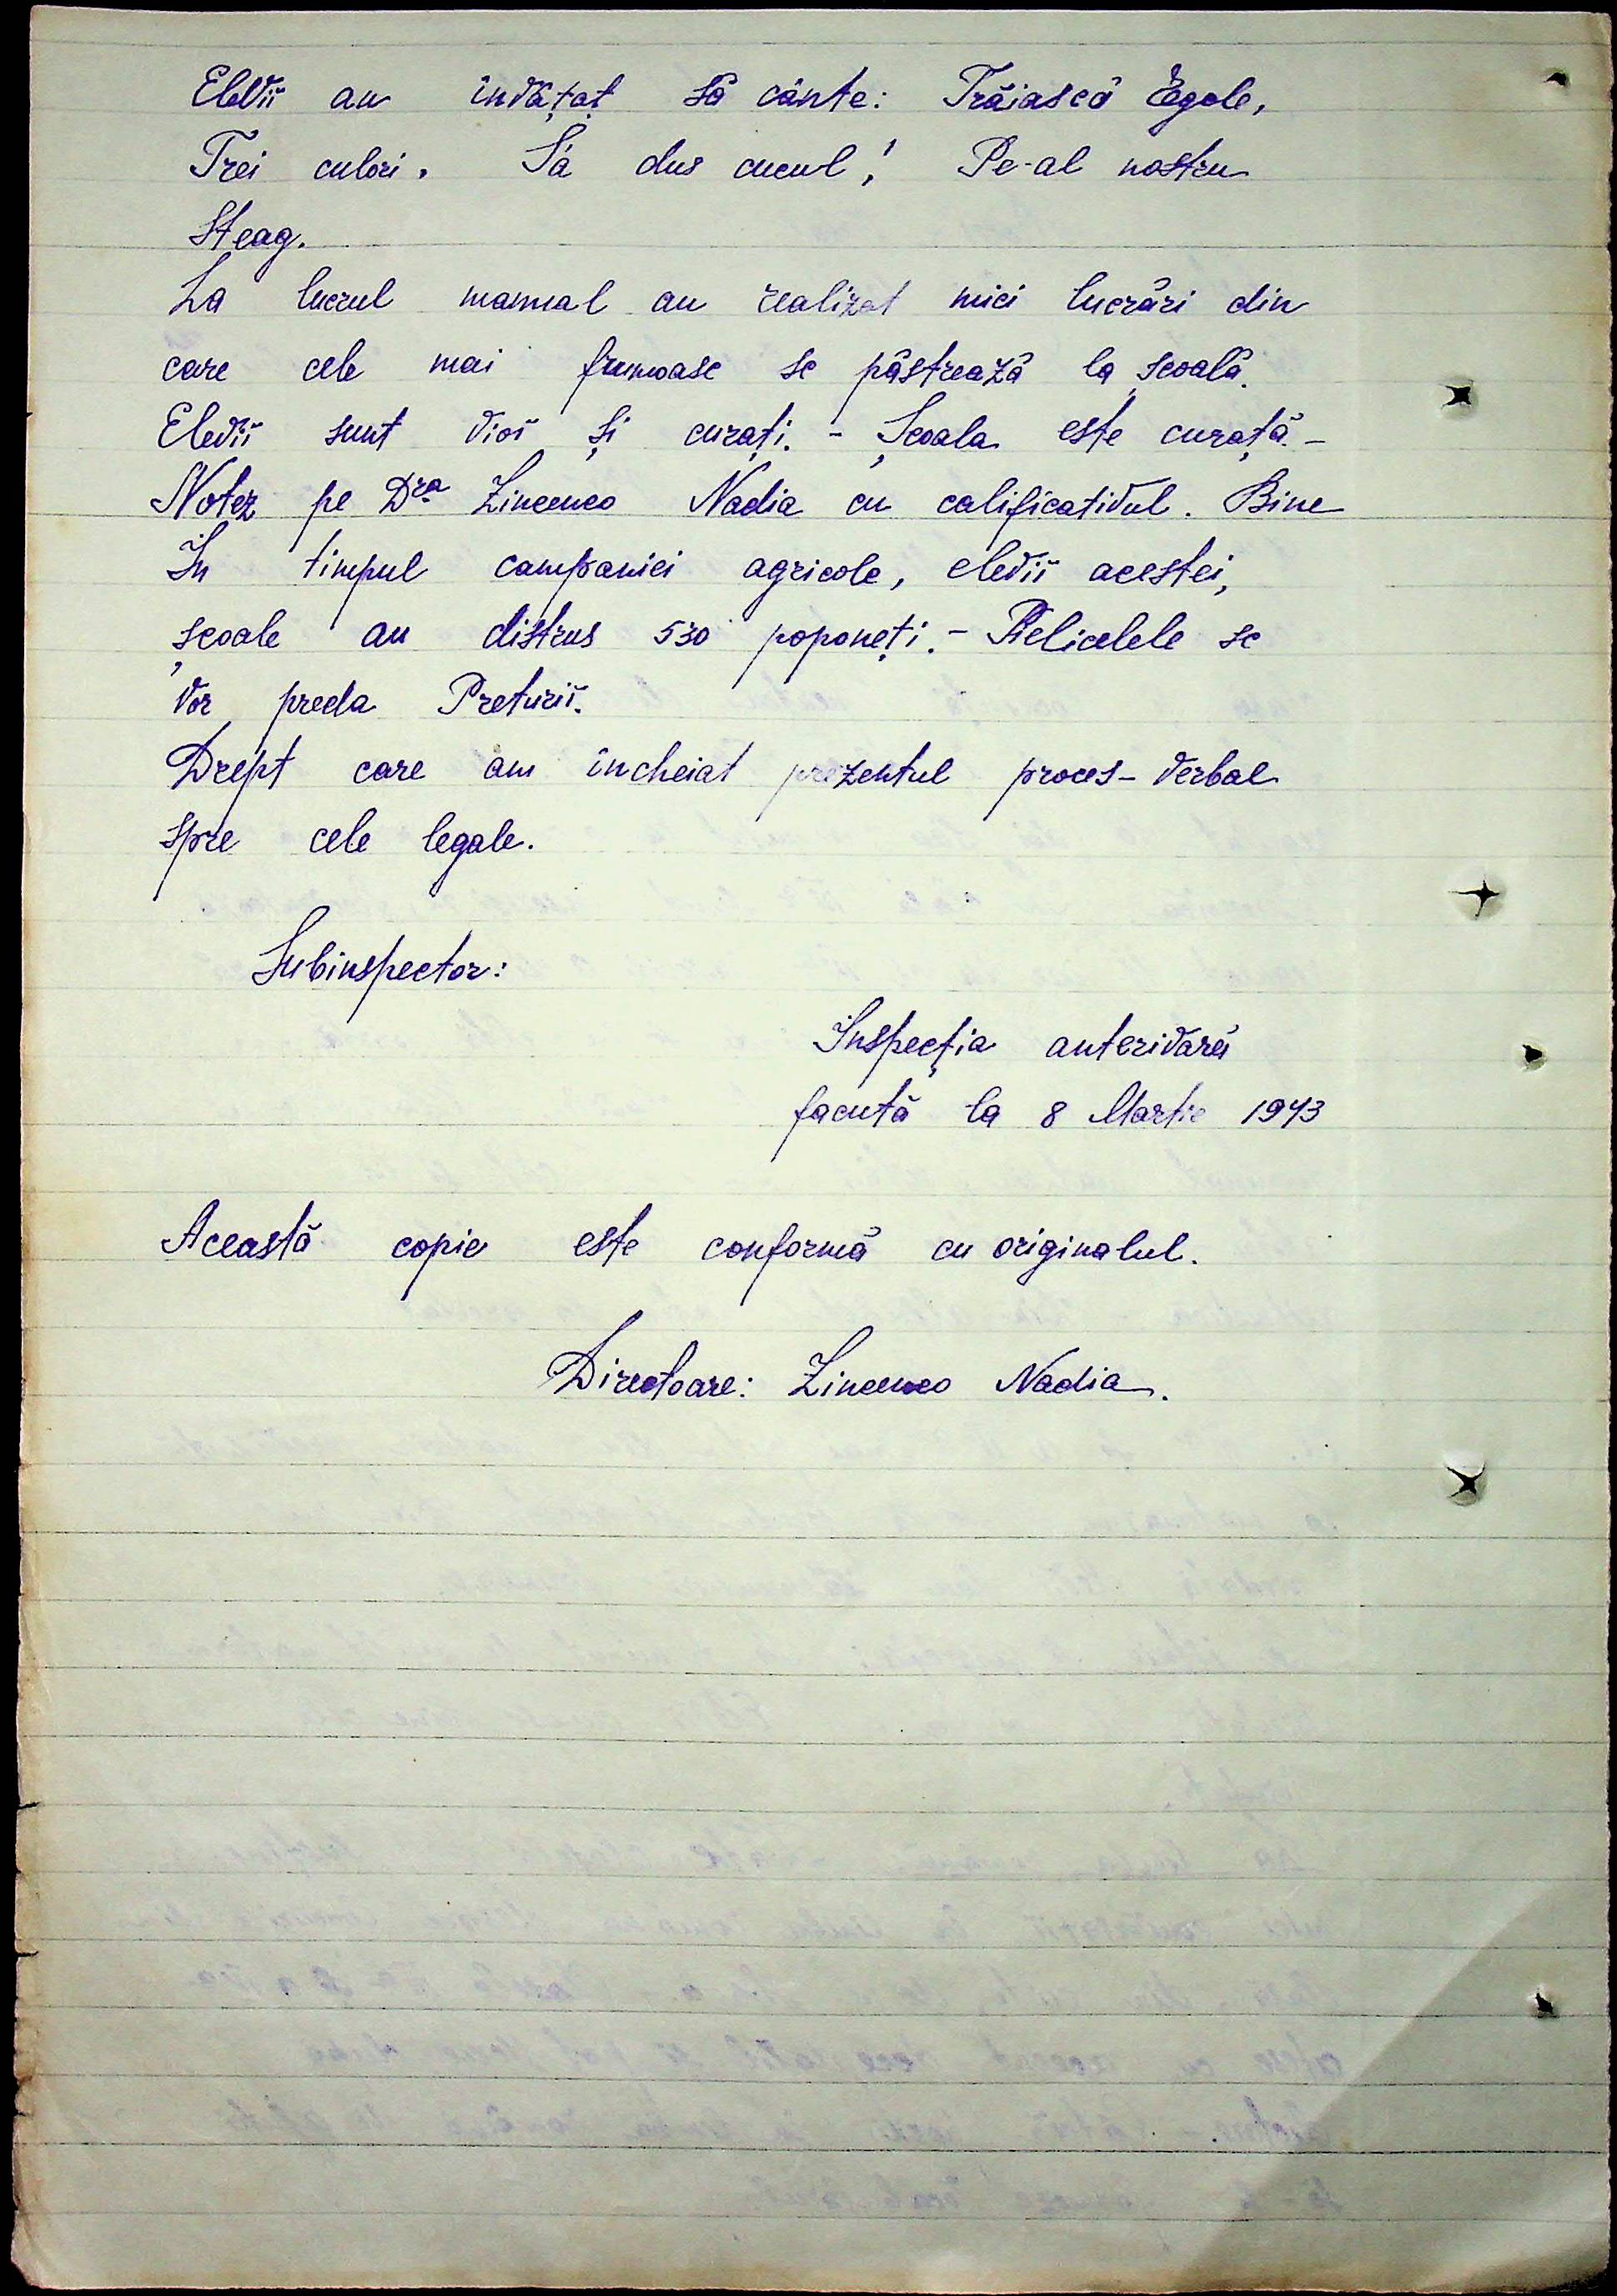 Elevii au învățat să cânte: Trăiască Regele,
Trei culori. S'a dus cucul! Pe-al nostru
Steag.
La lucrul manual au realizat mici lucrări din
care cele mai frumoase se păstrează la școală.
Elevii sunt vioi și curați. - Școala este curată. -
Notez pe Dra Zincenco Nadia cu calificativul. Bine
In timpul campaniei agricole, elevii acestei,
școale au distrus 530 poponeți. - Pielicelele se
vor preda Preturii.
Drept care am încheiat prezentul proces-verbal
spre cele legale.
Subinspector:
Inspecția anterioară
facută la 8 Martie 1943
Această copie este conformă cu originalul.
Directoare: Zincenco Nadia.